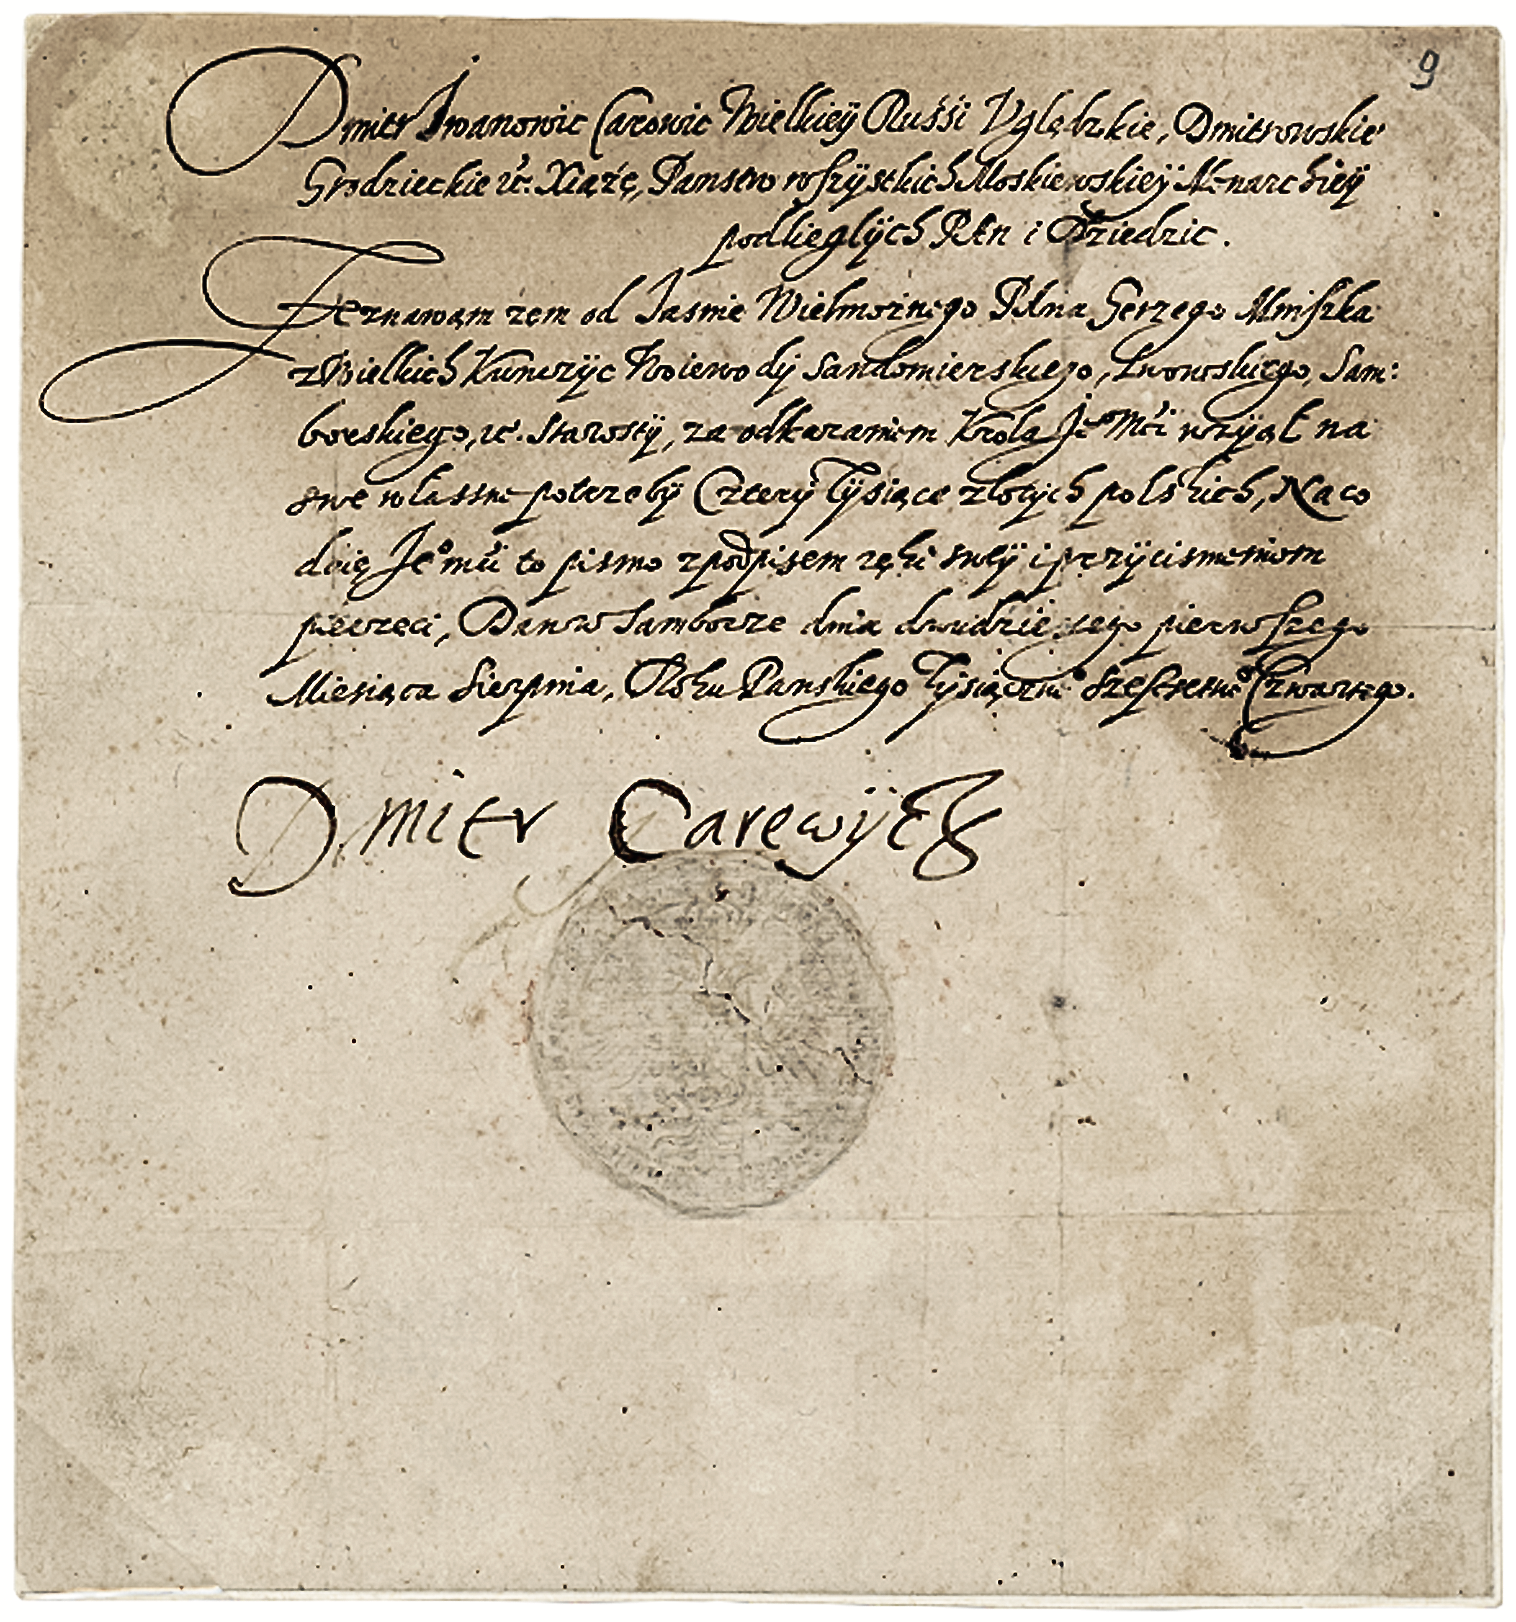 9
Dmitr Iwanowic Carowic Wielkiey Russi Vględzkie, Dmitrowskie
Grodzieckie etc. Xiążę, Panstw wszystkich Moskiewskiey Monarchiey
podlieglych Pan i Dziedzic.
Zeznawam żem od Jasnie Wielmożnego Pana Gerzego Mniszka
z Wielkich Kunczyc Woiewody Sandomierskiego, Lwowskiego, Sam:
borskiego, etc. Starosty, za odkazaniem Krola Jeº Mći wziął na
swe własne potrzeby Cztery Tysiące złotych polskich, Na co
daię Jeº mći to pismo z podpisem ręki swey i przycisnieniem
pieczęci, Dan w Samborze dnia dwudziestego pierwszego
Miesiąca Sierpnia, Roku Panskiego Tysiącznº Szescsetnº Czwartego.
Dmitr Carewycz